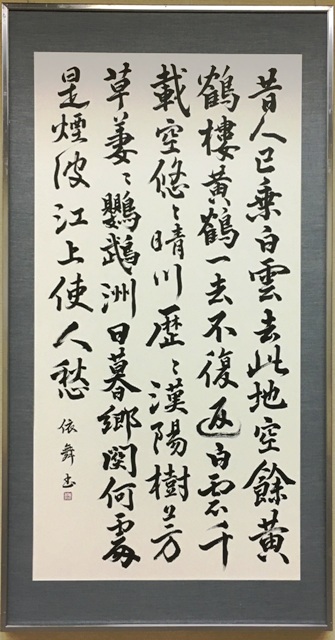 昔人已乗白雲去此地空餘黄
鶴樓黄鶴一去不復返白雲千
載空悠〻晴川歴〻漢陽樹芳
草萋〻鸚鵡洲日暮郷関何處
是煙波江上使人愁
依舞書